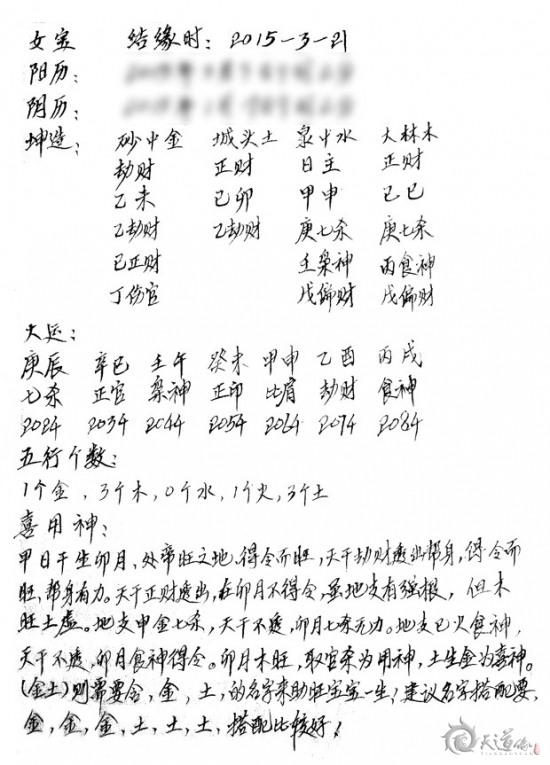 女宝 结缘时：2015-3-21
阳历：
阴历：
坤造： 砂中金 城头土 泉中水 大林木
劫财 正财 日主 正财
乙未 己卯 甲申 己巳
乙劫财 乙劫财 庚七杀 庚七杀
己正财 壬枭神 丙食神
丁伤官 戊偏财 戊偏财
大运：
庚辰 辛巳 壬午 癸未 甲申 乙酉 丙戌
七杀 正官 枭神 正印 比肩 劫财 食神
2024 2034 2044 2054 2064 2074 2084
五行个数：
1个金，3个木，0个水，1个火，3个土
喜用神：
甲日干生卯月、处帝旺之地、得令而旺，天干劫财透出帮身，得令而
旺、帮身有力。天干正财透出，在卯月不得令，虽地支有强根，但木
旺土虚。地支申金七杀，天干不透，卯月七杀无力。地支巳火食神，
天干不透，卯月食神得令。卯月木旺，取官杀为用神，土生金为喜神。
（金土）则需要含，金，土，的名字来助旺宝宝一生！建议名字搭配要，
金，金，金，土，土，土，搭配比较好！
天道